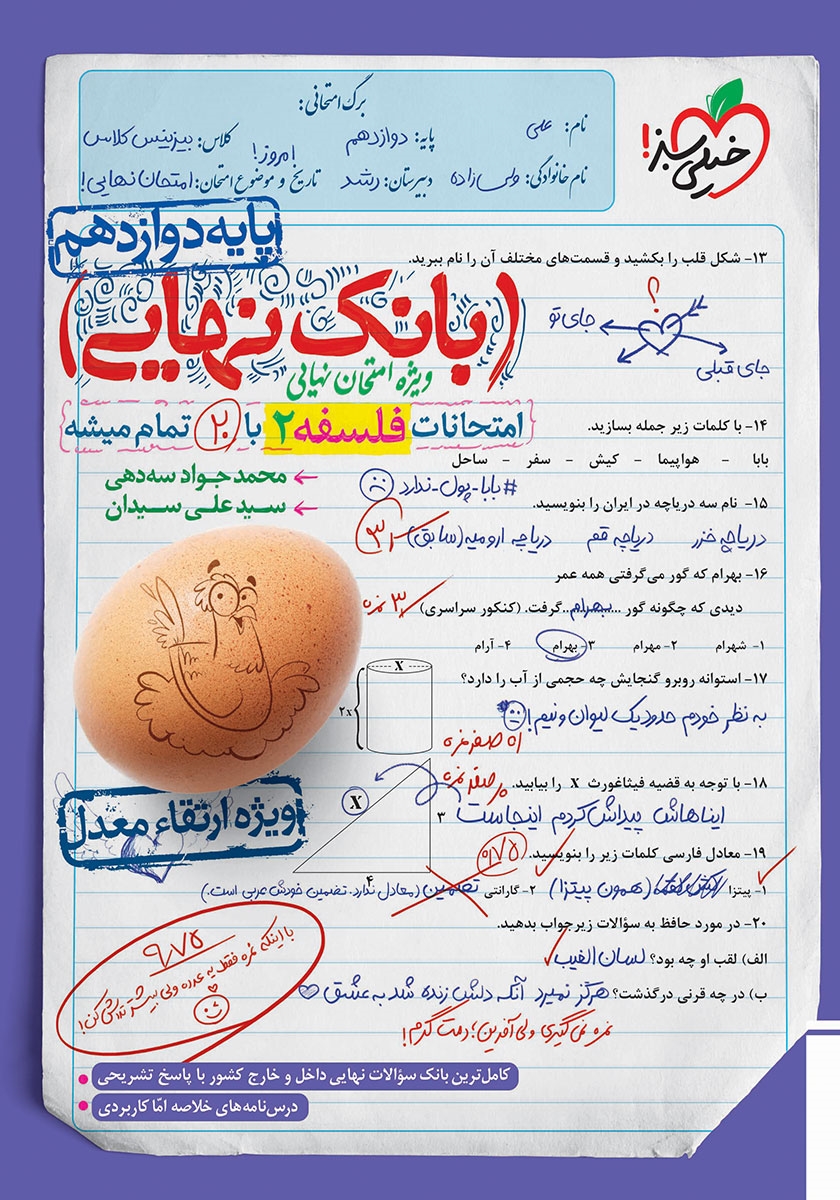 برگ امتحانی:
نام: علی
پایه: دوازدهم
کلاس: بیزینس کلاس
نام خانوادگی: ولی زاده
دبیرستان: رشد
تاریخ و موضوع امتحان: امتحان نهایی!
امروز!
خیلی سبز!
پایه دوازدهم
(بانک نهایی)
ویژه امتحان نهایی
امتحانات فلسفه ۲ با ۲۰ تمام میشه
محمدجواد سه‌دهی
سیدعلی سیدان
۱۳- شکل قلب را بکشید و قسمت‌های مختلف آن را نام ببرید.
؟
جای تو
جای قبلی
۱۴- با کلمات زیر جمله بسازید.
بابا - هواپیما - کیش - سفر - ساحل
#بابا-پول-ندارد
۱۵- نام سه دریاچه در ایران را بنویسید.
دریاچه خزر دریاچه قم دریاچه ارومیه (سابق)
۱۶- بهرام که گور می‌گرفتی همه عمر
دیدی که چگونه گور ...بهرام...گرفت. (کنکور سراسری)
۳ نمره
۱- شهرام ۲- مهرام ۳- بهرام ۴- آرام
۱۷- استوانه روبرو گنجایش چه حجمی از آب را دارد؟
X
۲x
به نظر خودم حدود یک لیوان و نیم!
اه صفر نمره
۱۸- با توجه به قضیه فیثاغورث X را بیابید.
صفر نمره
ایناهاش پیداش کردم اینجاست
X
۳
۴
ویژه ارتقاء معدل
۱۹- معادل فارسی کلمات زیر را بنویسید.
۰/۷۵
۱- پیتزا (همون پیتزا) ۲- گارانتی تضمین (معادل ندارد. تضمین خودش عربی است.)
۲۰- در مورد حافظ به سؤالات زیر جواب بدهید.
الف) لقب او چه بود؟ لسان الغیب
ب) در چه قرنی درگذشت؟ هرگز نمیرد آنکه دلش زنده شد به عشق
نمره نمی‌گیری ولی آفرین؛ دمت گرم!
۹/۷۵
با اینکه نمره فقط یه عدده ولی بیشتر تلاش کن!
کامل‌ترین بانک سؤالات نهایی داخل و خارج کشور با پاسخ تشریحی
درس‌نامه‌های خلاصه امّا کاربردی